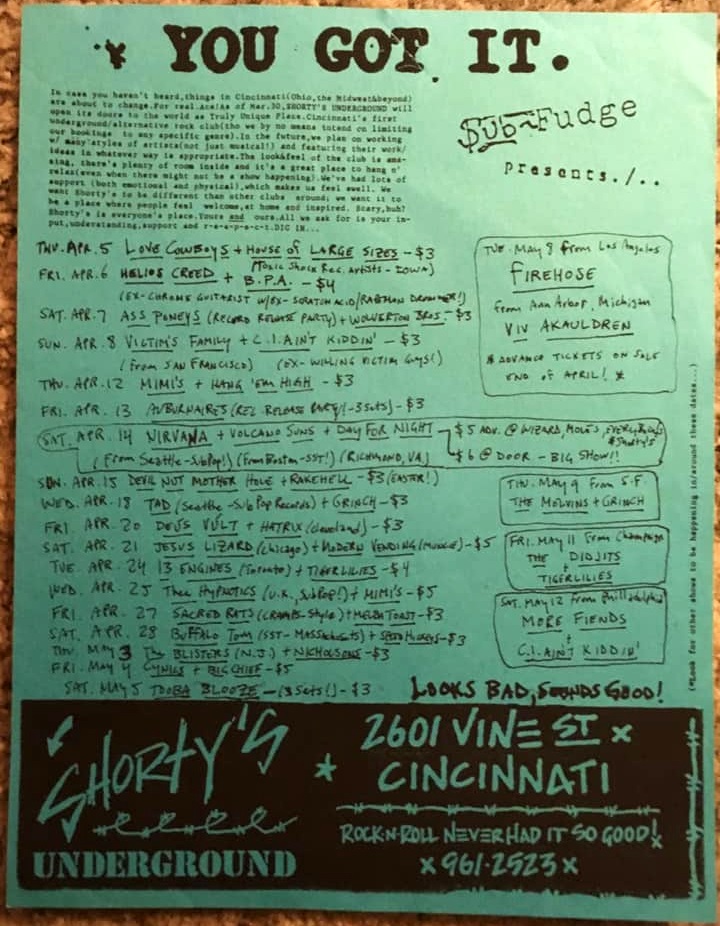 * YOU GOT IT.
In case you haven't heard,things in Cincinnati(Ohio,the Midwest&beyond)
are about to change.For real.As(As of Mar.30,SHORTY'S UNDERGROUND will
open its doors to the world as Truly Unique Place.Cincinnati's first
underground/alternative rock club(tho we by no means intend on limiting
our bookings to any specific genre).In the future,we plan on working
w/ many styles of artists(not just musical!) and featuring their work/
ideas in whatever way is appropriate.The look&feel of the club is ama-
zing, there's plenty of room inside and it's a great place to hang n'
relax(even when there might not be a show happening).We've had lots of
support (both emotional and physical),which makes us feel swell. We
want Shorty's to be different than other clubs around; we want it to
be a place where people feel welcome,at home and inspired. Scary,huh?
Shorty's is everyone's place.Yours and ours.All we ask for is your in-
put,understanding,support and r-e-s-p-e-c-t.DIG IN...
Sub-Fudge
presents./..
THU. APR. 5 LOVE COWBOYS + HOUSE OF LARGE SIZES - $3
(TOXIC SHOCK REC. ARTISTS - IOWA)
FRI. APR. 6 HELIOS CREED + B.P.A. - $4
(EX-CHROME GUITARIST W/EX-SCRATCH ACID/RAPEMAN DRUMMER!)
SAT. APR. 7 ASS PONEYS (RECORD RELEASE PARTY) + WOLVERTON BROS. - $3
SUN. APR. 8 VICTIM'S FAMILY + C.I. AIN'T KIDDIN' - $3
(from SAN FRANCISCO) (EX-WILLING VICTIM GUYS!)
THU. APR. 12 MIMI'S + HANG 'EM HIGH - $3
FRI. APR. 13 AUBURNAIRES (REL. RELEASE PARTY!-3 SETS) - $3
SAT. APR. 14 NIRVANA + VOLCANO SUNS + DAY FOR NIGHT - $5 ADV. @ WIZARD, MOLES, EVERYBODY'S
& SHORTY'S
(From Seattle-SubPop!) (From Boston-SST!) (RICHMOND, VA) $6 @ DOOR - BIG SHOW!!
SUN. APR. 15 DEVIL NOT MOTHER HOLE + RAKEHELL - $3 (EASTER!)
WED. APR. 18 TAD (Seattle-Sub Pop Records) + GRINCH - $3
FRI. APR. 20 DEUS VULT + HATRIX (Cleveland) - $3
SAT. APR. 21 JESUS LIZARD (Chicago) + MODERN VENDING (MUNCIE) - $5
TUE. APR. 24 13 ENGINES (Toronto) + TIGERLILIES - $4
WED. APR. 25 Thee HYPNOTICS (U.K., SubPop!) + MIMI'S - $5
FRI. APR. 27 SACRED RATS (CRAMPS-Style) + MELBA TOAST - $3
SAT. APR. 28 BUFFALO TOM (SST-MASSACHUSETTS) + SPEED HICKEYS - $3
THU. MAY 3 The BLISTERS (N.J.) + NICHOLSONS - $3
FRI. MAY 4 CYNICS + BIG CHIEF - $5
SAT. MAY 5 TOOBA BLOOZE - (3 Sets!) - $3
TUE. MAY 8 from Los Angeles
FIREHOSE
from Ann Arbor, Michigan
VIV AKAULDREN
* ADVANCE TICKETS ON SALE
END OF APRIL! *
THU. MAY 9 From S.F.
THE MELVINS + GRINCH
FRI. MAY 11 From Champaign
THE DIDJITS
+
TIGERLILIES
SAT. MAY 12 from Philladelphia
MORE FIENDS
+
C.I. AIN'T KIDDIN'
(*Look for other shows to be happening in/around these dates...)
LOOKS BAD, SOUNDS GOOD!
SHORTY'S
UNDERGROUND
* 2601 VINE ST x
CINCINNATI
ROCK-N-ROLL NEVER HAD IT SO GOOD!x
x 961-2523 x